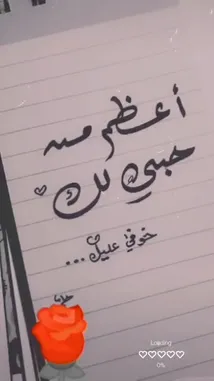 أعظم من
حبي لك
خوفي عليك...
Loading
0%